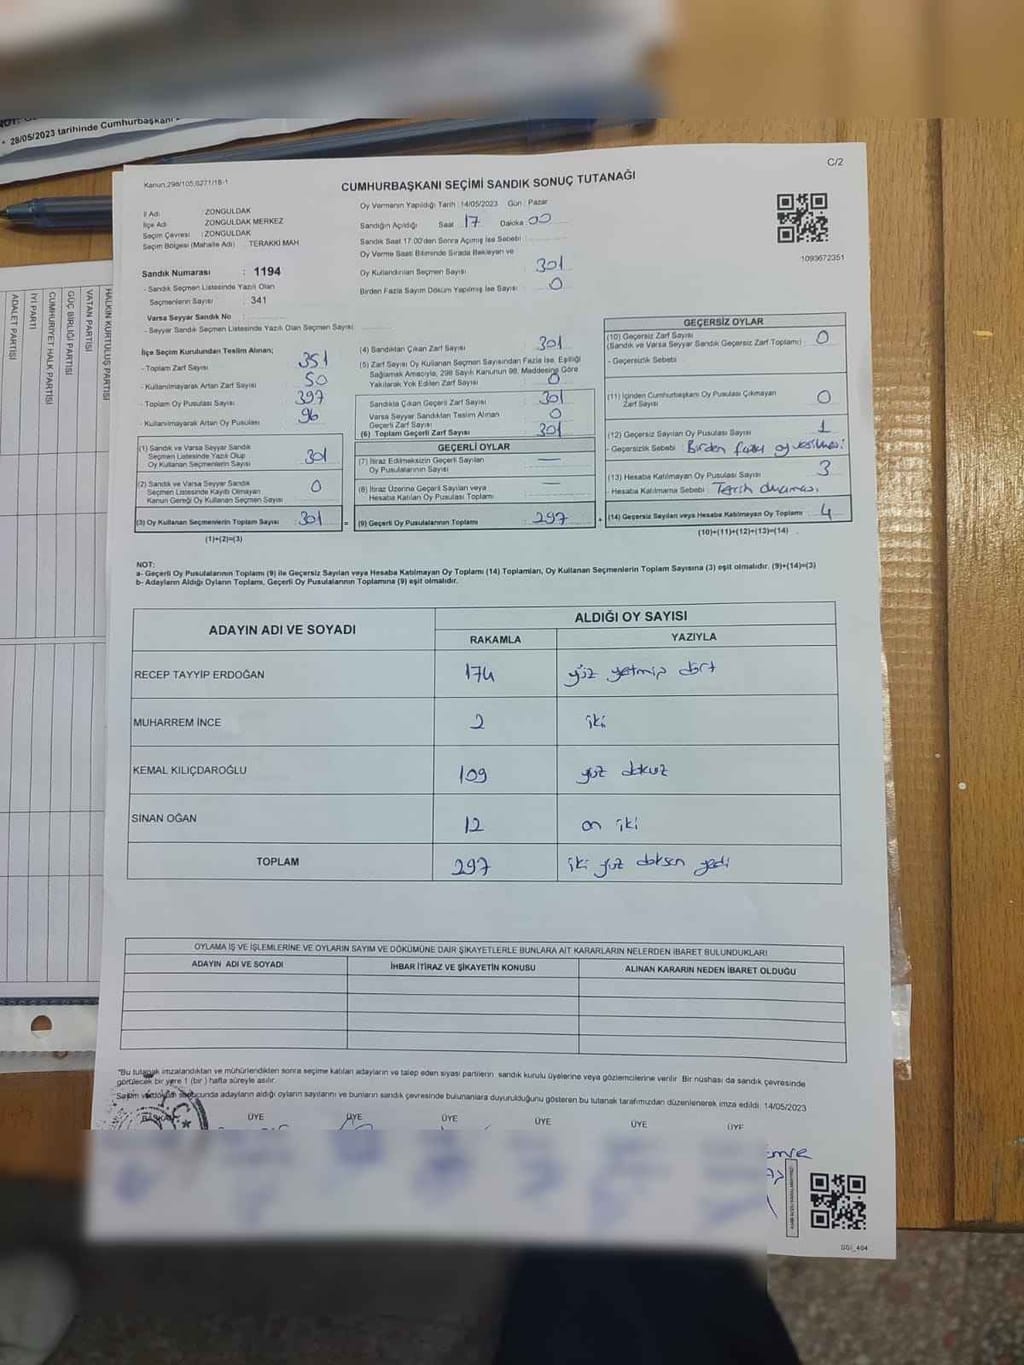 NOT:
• 28/05/2023 tarihinde Cumhurbaşkanı
C/2
Kanun,298/105,6271/18-1
CUMHURBAŞKANI SEÇİMİ SANDIK SONUÇ TUTANAĞI
İl Adı : ZONGULDAK
İlçe Adı : ZONGULDAK MERKEZ
Seçim Çevresi : ZONGULDAK
Seçim Bölgesi (Mahalle Adı) : TERAKKİ MAH
Sandık Numarası : 1194
- Sandık Seçmen Listesinde Yazılı Olan
Seçmenlerin Sayısı : 341
Varsa Seyyar Sandık No :
- Seyyar Sandık Seçmen Listesinde Yazılı Olan Seçmen Sayısı:
Oy Vermenin Yapıldığı Tarih :14/05/2023 Gün : Pazar
Sandığın Açıldığı Saat 17 Dakika 00
Sandık Saat 17:00'den Sonra Açımış İse Sebebi :
Oy Verme Saati Bitiminde Sırada Bekleyen ve
Oy Kullandırılan Seçmen Sayısı : 301
Birden Fazla Sayım Döküm Yapılmış İse Sayısı : 0
1093672351
İlçe Seçim Kurulundan Teslim Alınan;
- Toplam Zarf Sayısı : 351
- Kullanılmayarak Artan Zarf Sayısı : 50
- Toplam Oy Pusulası Sayısı : 397
- Kullanılmayarak Artan Oy Pusulası : 96
(1) Sandık ve Varsa Seyyar Sandık
Seçmen Listesinde Yazılı Olup
Oy Kullanan Seçmenlerin Sayısı : 301
(2) Sandık ve Varsa Seyyar Sandık
Seçmen Listesinde Kayıtlı Olmayan
Kanun Gereği Oy Kullanan Seçmen Sayısı : 0
(3) Oy Kullanan Seçmenlerin Toplam Sayısı : 301 =
(1)+(2)=(3)
(4) Sandıktan Çıkan Zarf Sayısı : 301
(5) Zarf Sayısı Oy Kullanan Seçmen Sayısından Fazla İse, Eşitliği
Sağlamak Amacıyla, 298 Sayılı Kanunun 98. Maddesine Göre
Yakılarak Yok Edilen Zarf Sayısı : 0
Sandıkta Çıkan Geçerli Zarf Sayısı : 301
Varsa Seyyar Sandıktan Teslim Alınan
Geçerli Zarf Sayısı : 0
(6) Toplam Geçerli Zarf Sayısı : 301
GEÇERLİ OYLAR
(7) İtiraz Edilmeksizin Geçerli Sayılan
Oy Pusulalarının Sayısı : —
(8) İtiraz Üzerine Geçerli Sayılan veya
Hesaba Katılan Oy Pusulaları Toplamı : —
(9) Geçerli Oy Pusulalarının Toplamı : 297 +
GEÇERSİZ OYLAR
(10) Geçersiz Zarf Sayısı
(Sandık ve Varsa Seyyar Sandık Geçersiz Zarf Toplamı) : 0
- Geçersizlik Sebebi :
(11) İçinden Cumhurbaşkanı Oy Pusulası Çıkmayan
Zarf Sayısı : 0
(12) Geçersiz Sayılan Oy Pusulası Sayısı : 1
- Geçersizlik Sebebi : Birden fazla oy verilmesi
(13) Hesaba Katılmayan Oy Pusulası Sayısı : 3
Hesaba Katılmama Sebebi : Tercih olmaması
(14) Geçersiz Sayılan veya Hesaba Katılmayan Oy Toplamı : 4
(10)+(11)+(12)+(13)=(14)
NOT:
a- Geçerli Oy Pusulalarının Toplamı (9) ile Geçersiz Sayılan veya Hesaba Katılmayan Oy Toplamı (14) Toplamları, Oy Kullanan Seçmenlerin Toplam Sayısına (3) eşit olmalıdır. (9)+(14)=(3)
b- Adayların Aldığı Oyların Toplamı, Geçerli Oy Pusulalarının Toplamına (9) eşit olmalıdır.
ADAYIN ADI VE SOYADI
ALDIĞI OY SAYISI
RAKAMLA YAZIYLA
RECEP TAYYIP ERDOĞAN 174 yüz yetmiş dört
MUHARREM İNCE 2 iki
KEMAL KILIÇDAROĞLU 109 yüz dokuz
SİNAN OĞAN 12 on iki
TOPLAM 297 iki yüz doksan yedi
OYLAMA İŞ VE İŞLEMLERİNE VE OYLARIN SAYIM VE DÖKÜMÜNE DAİR ŞİKAYETLERLE BUNLARA AİT KARARLARIN NELERDEN İBARET BULUNDUKLARI
ADAYIN ADI VE SOYADI İHBAR İTİRAZ VE ŞİKAYETİN KONUSU ALINAN KARARIN NEDEN İBARET OLDUĞU
*Bu tutanak imzalandıktan ve mühürlendikten sonra seçime katılan adayların ve talep eden siyasi partilerin sandık kurulu üyelerine veya gözlemcilerine verilir. Bir nüshası da sandık çevresinde
görülecek bir yere 1 (bir ) hafta süreyle asılır.
Sayım ve döküm sonucunda adayların aldığı oyların sayılarını ve bunların sandık çevresinde bulunanlara duyurulduğunu gösteren bu tutanak tarafımızdan düzenlenerek imza edildi. 14/05/2023
BAŞKAN ÜYE ÜYE ÜYE ÜYE ÜYE ÜYE
SSİ_404
HALKIN KURTULUŞ PARTİSİ
VATAN PARTİSİ
GÜÇ BİRLİĞİ PARTİSİ
CUMHURİYET HALK PARTİSİ
İYİ PARTİ
ADALET PARTİSİ